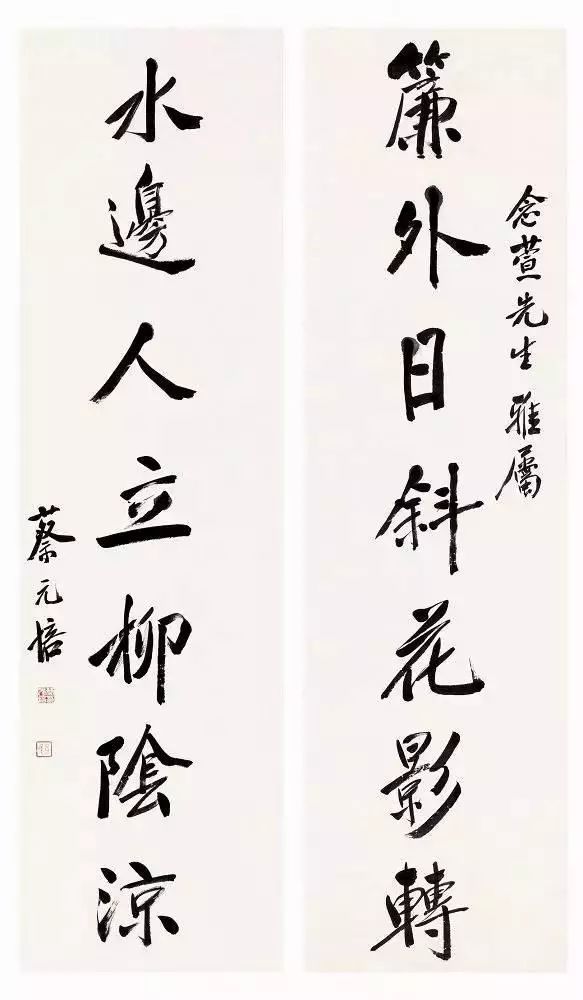 念萱先生雅属
簾外日斜花影轉
水邊人立柳陰涼
蔡元培